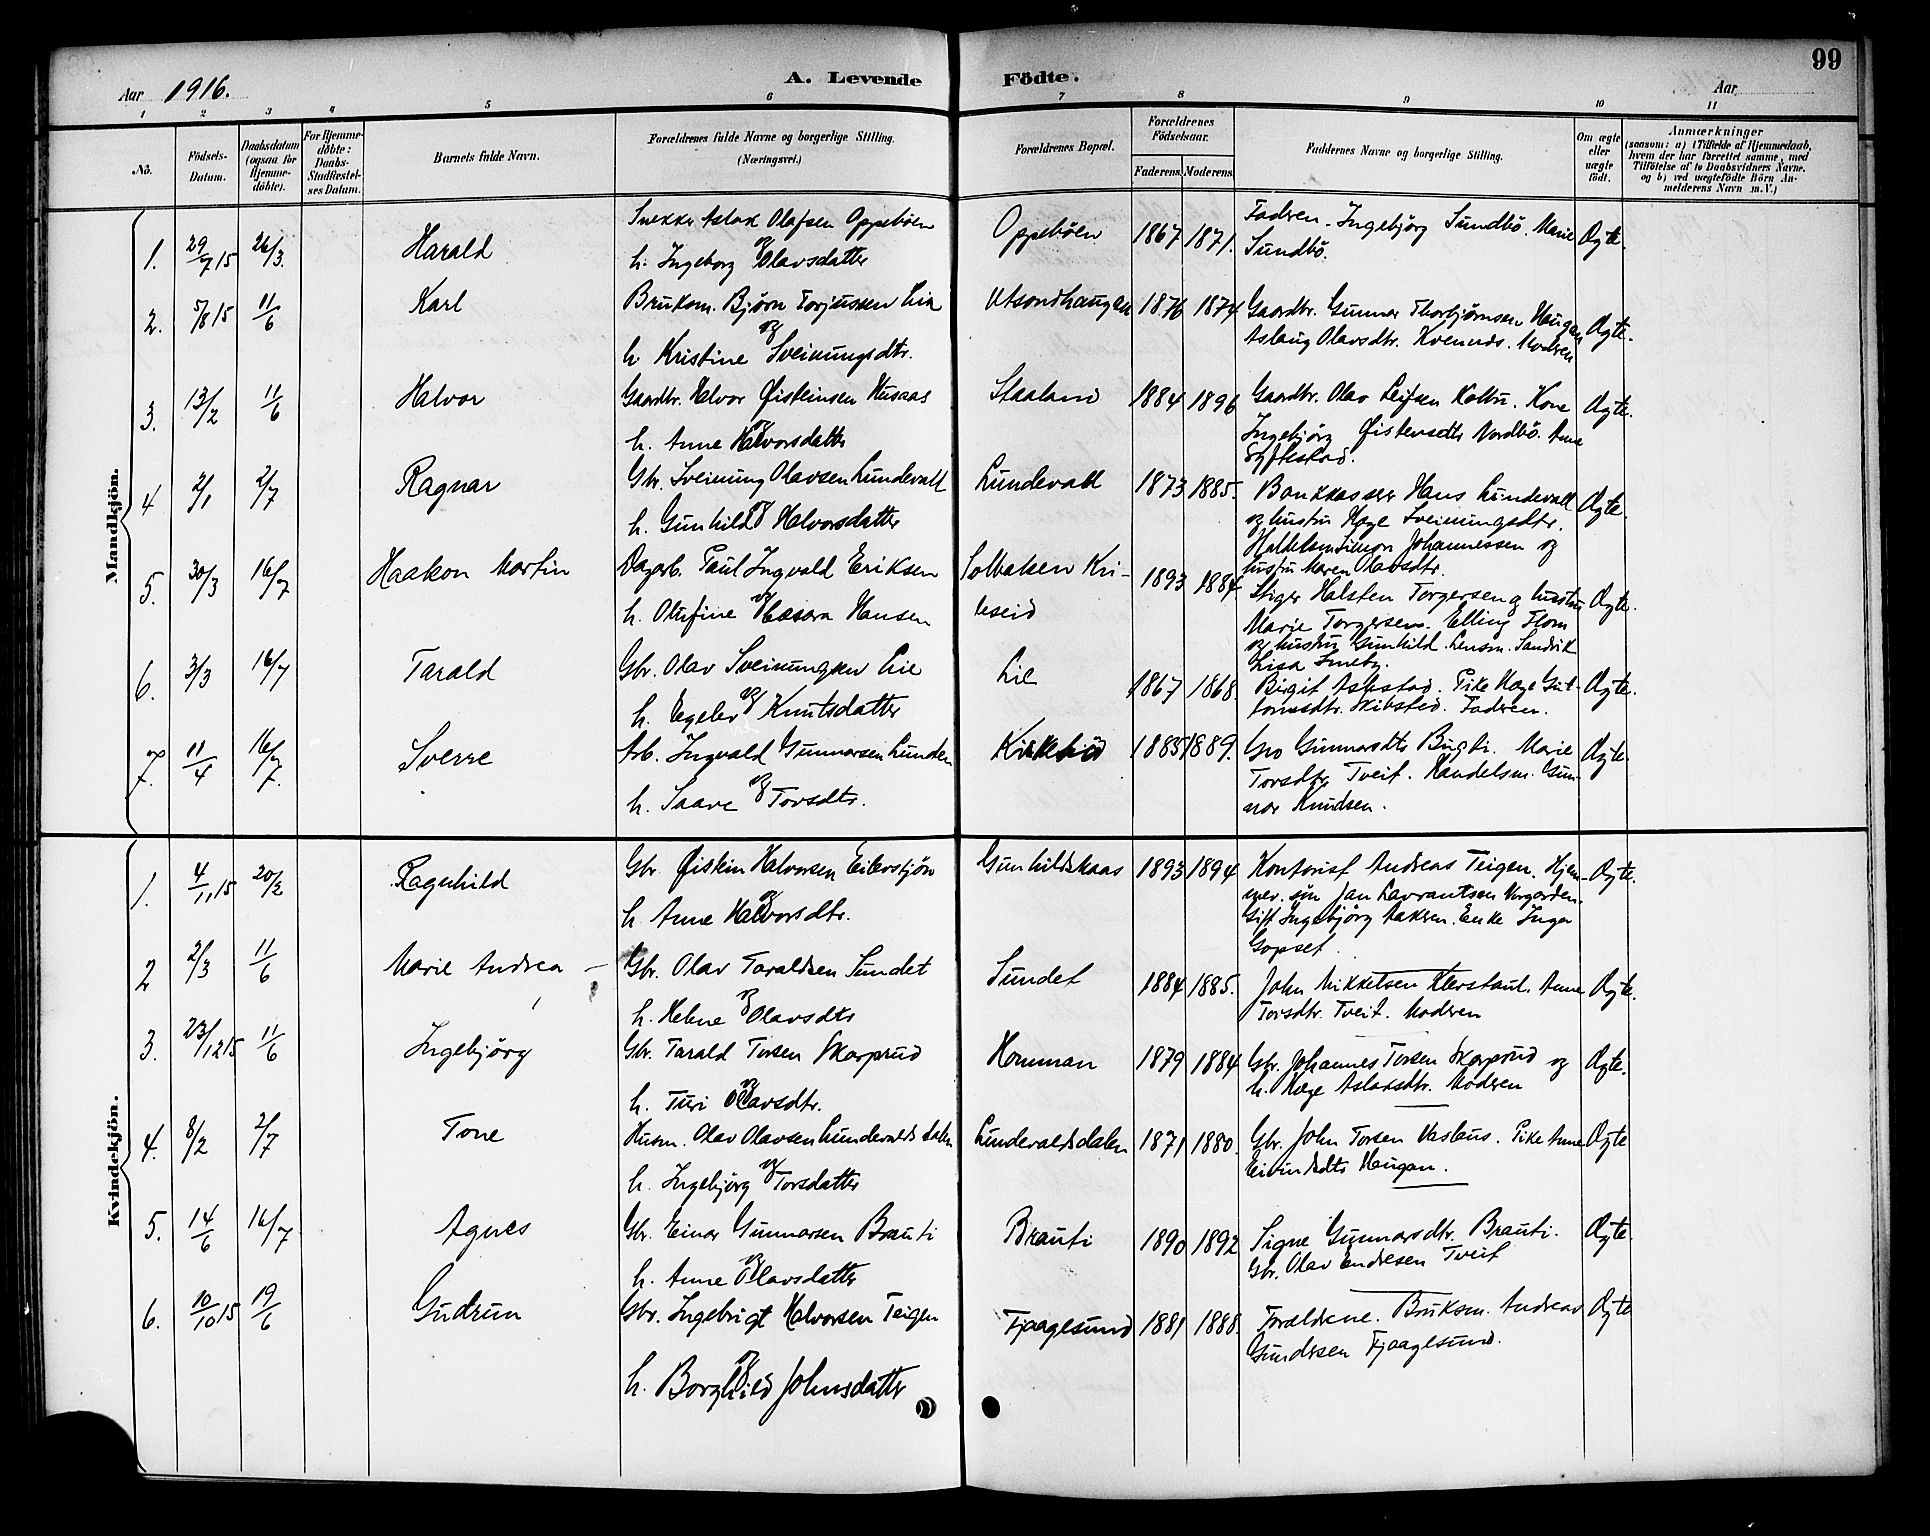 99
Aar 1916. A. Levende Födte. Aar
1 2 3 4 5 6 7 8 9 10 11
No.
Födsels-
Datum.
Daabsdatum
(ogsaa for
Hjemme-
döbte).
For Hjemme-
döbte:
Daabs-
Stadfæstel-
ses Datum.
Barnets fulde Navn.
Forældrenes fulde Navne og borgerlige Stilling.
(Næringsvei.)
Forældrenes Bopæl.
Forældrenes
Födselsaar.
Faderens. Moderens.
Faddernes Navne og borgerlige Stilling.
Om ægte
eller
uægte
födt.
Anmærkninger
(saasom: a) i Tilfælde af Hjemmedaab,
hvem der har forrettet samme, med
Tilföielse af to Daabsvidners Navne.
og b) ved uægtefödte Börn An-
melderens Navn m. V.)
Mandkjön.
1. 29/7 15 26/3. Harald
Snekker Aslak Olafsen Oppebøen
og
h. Ingeborg Olavsdatter
Oppeböen 1867 1871.
Faderen. Ingebjörg Sundbö. Marie
Sundbö.
Ægte.
2. 5/8 15 11/6 Karl
Bruksm. Bjørn Torjussen Lia
og
h. Kristine Sveinungsdtr.
Utsondhaugen 1876 1874
Gaardbr. Gunnar Thorbjørnsen Haugan
Aslaug Olavsdtr. Moderen
Ægte.
3. 13/2 11/6 Halvor
Gaardbr. Halvor Øisteinsen Husaas
og
h. Anne Halvorsdatter
Staaland 1884 1896
Gaardbr. Olav Leifsen Kone
Ingebjörg Nordbö. Anne
Syftestad.
Ægte.
4 2/1 2/7 Ragnar
Gbr. Sveinung Olavsen Lundevall
og
h. Gunhild Halvorsdatter
Lundevall 1873 1885.
Bankkasser Hans Lundevall
og hustru Hæge Sveinungsdtr.
Johannessen og
hustru Maren Olavsdtr.
Ægte.
5. 30/3 16/7 Haakon Martin
Dagarb. Paul Ingvald Eriksen
og
h. Olufine Hansen
Solbakken Kvi-
teseid
1893 1884
Stiger Halsten Torgersen og hustru
Marie Torgersen. Elling Flom
og hustru Gunhild. Lensm. Sandvik
Lisa Smeby.
Ægte.
6. 3/3 16/7 Tarald
Gbr. Olav Sveinungsen Lie
og
h. Egelev Knutsdatter
Lie 1867 1868.
Birgit Askstad. Pike Hæge Gut-
tormsdtr. Skibsted. Faderen.
Ægte.
7. 11/4 16/7. Sverre
Arb. Ingvald Gunnarsen Lunden
og
h. Saave Torsdtr.
Kirkebö 1885 1889.
Gro Gunnarsdtr. Marie
Torsdtr. Tveit. Handelsm. Gun-
nar Knudsen.
Ægte.
Kvindekjön.
1. 4/11 15 20/2 Ragnhild
Gbr. Øistein Halvorsen Eilevstjön
og
h. Anne Halvorsdtr.
Gunhildskaas 1893 1894
Kontorist Andreas Teigen. Hjem-
mev. sön Jan Lavrantsen Norgården.
Gift Ingebjörg Aakren. Enke Inger
Gopset.
Ægte.
2 2/3 11/6 Marie Andrea –
Gbr. Olav Taraldsen Sundet
og
h. Helene Olavsdtr
Sundet 1884 1885.
John Mikkelsen Anne
Torsdtr. Tveit. Moderen
Ægte.
3. 23/12 15 11/6 Ingebjörg
Gbr. Tarald Torsen Skarprud
og
h. Turi Olavsdtr.
Homman 1879 1884
Gbr. Johannes Torsen Skarprud og
h. Hæge Aslaksdtr. Moderen
Ægte.
4. 8/2 2/7 Tone
Husm. Olav Olavsen Lundevaldsdalen
og
h. Ingebjörg Torsdatter
Lundevaldsdalen 1871 1880.
Gbr. John Torsen Vashus. Pike Anne
Eivindsdtr Haugan.
Ægte
5. 14/6 16/7 Agnes
Gbr. Einar Gunnarsen Brauti
og
h. Anne Olavsdatter
Brauti 1890 1892
Signe Gunnarsdtr. Brauti.
Gbr. Olav Endresen Tveit
Ægte.
6. 10/10 15 19/6 Gudrun
Gbr. Ingebrigt Halvorsen Teigen
og
h. Borghild Johnsdatter
Fjaagesund 1881 1888.
Forældrene. Bruksm. Andreas
Gundersen Fjaagesund.
Ægte